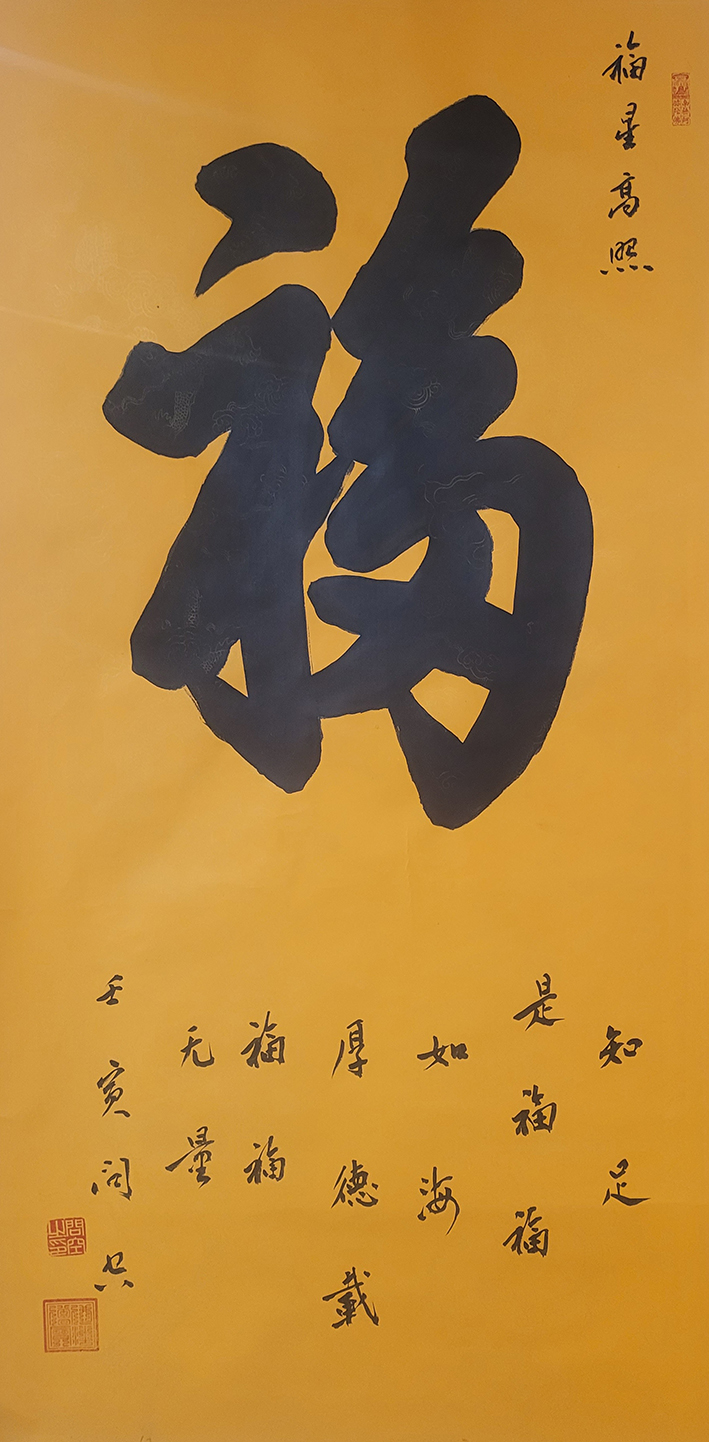 福星高照
福
知足
是福福
如海
厚德載
福福
无量
壬寅问空
問空之印